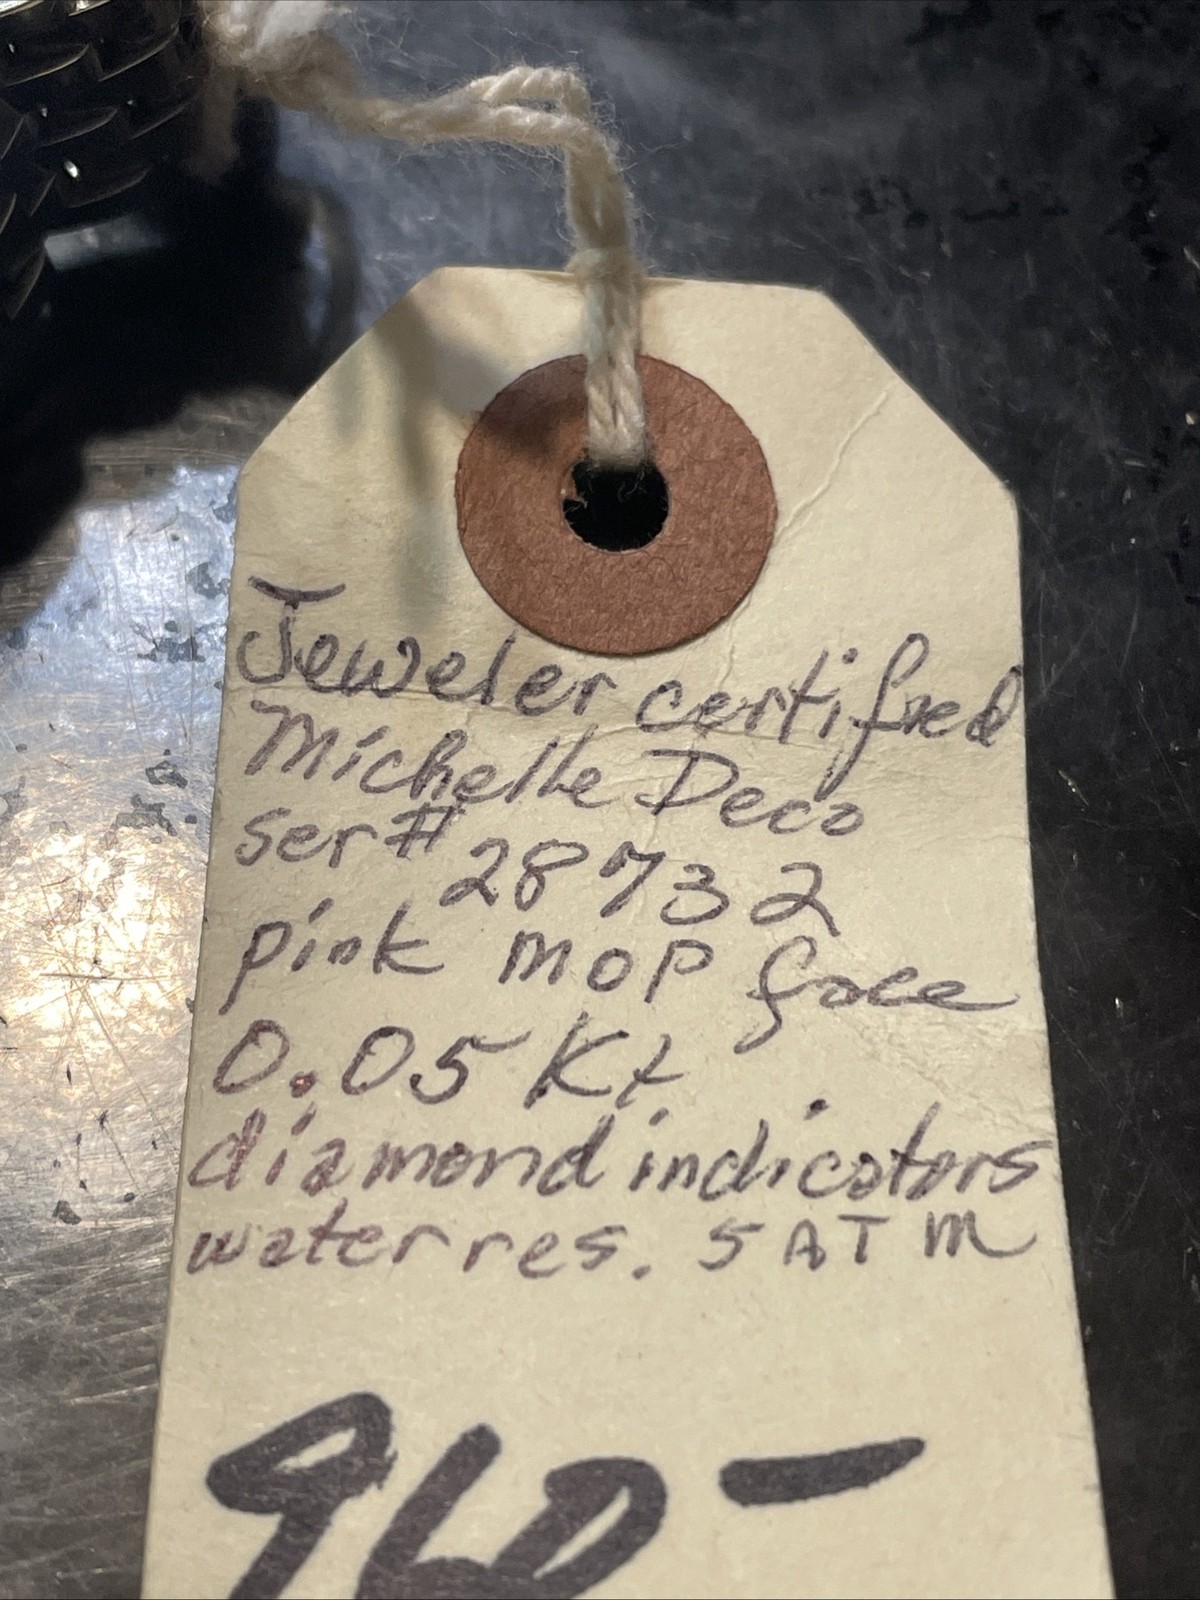 Jeweler certified
Michelle Deco
ser # 28732
pink MOP face
0.05 Kt
diamond indicators
water res. 5 ATM
960-